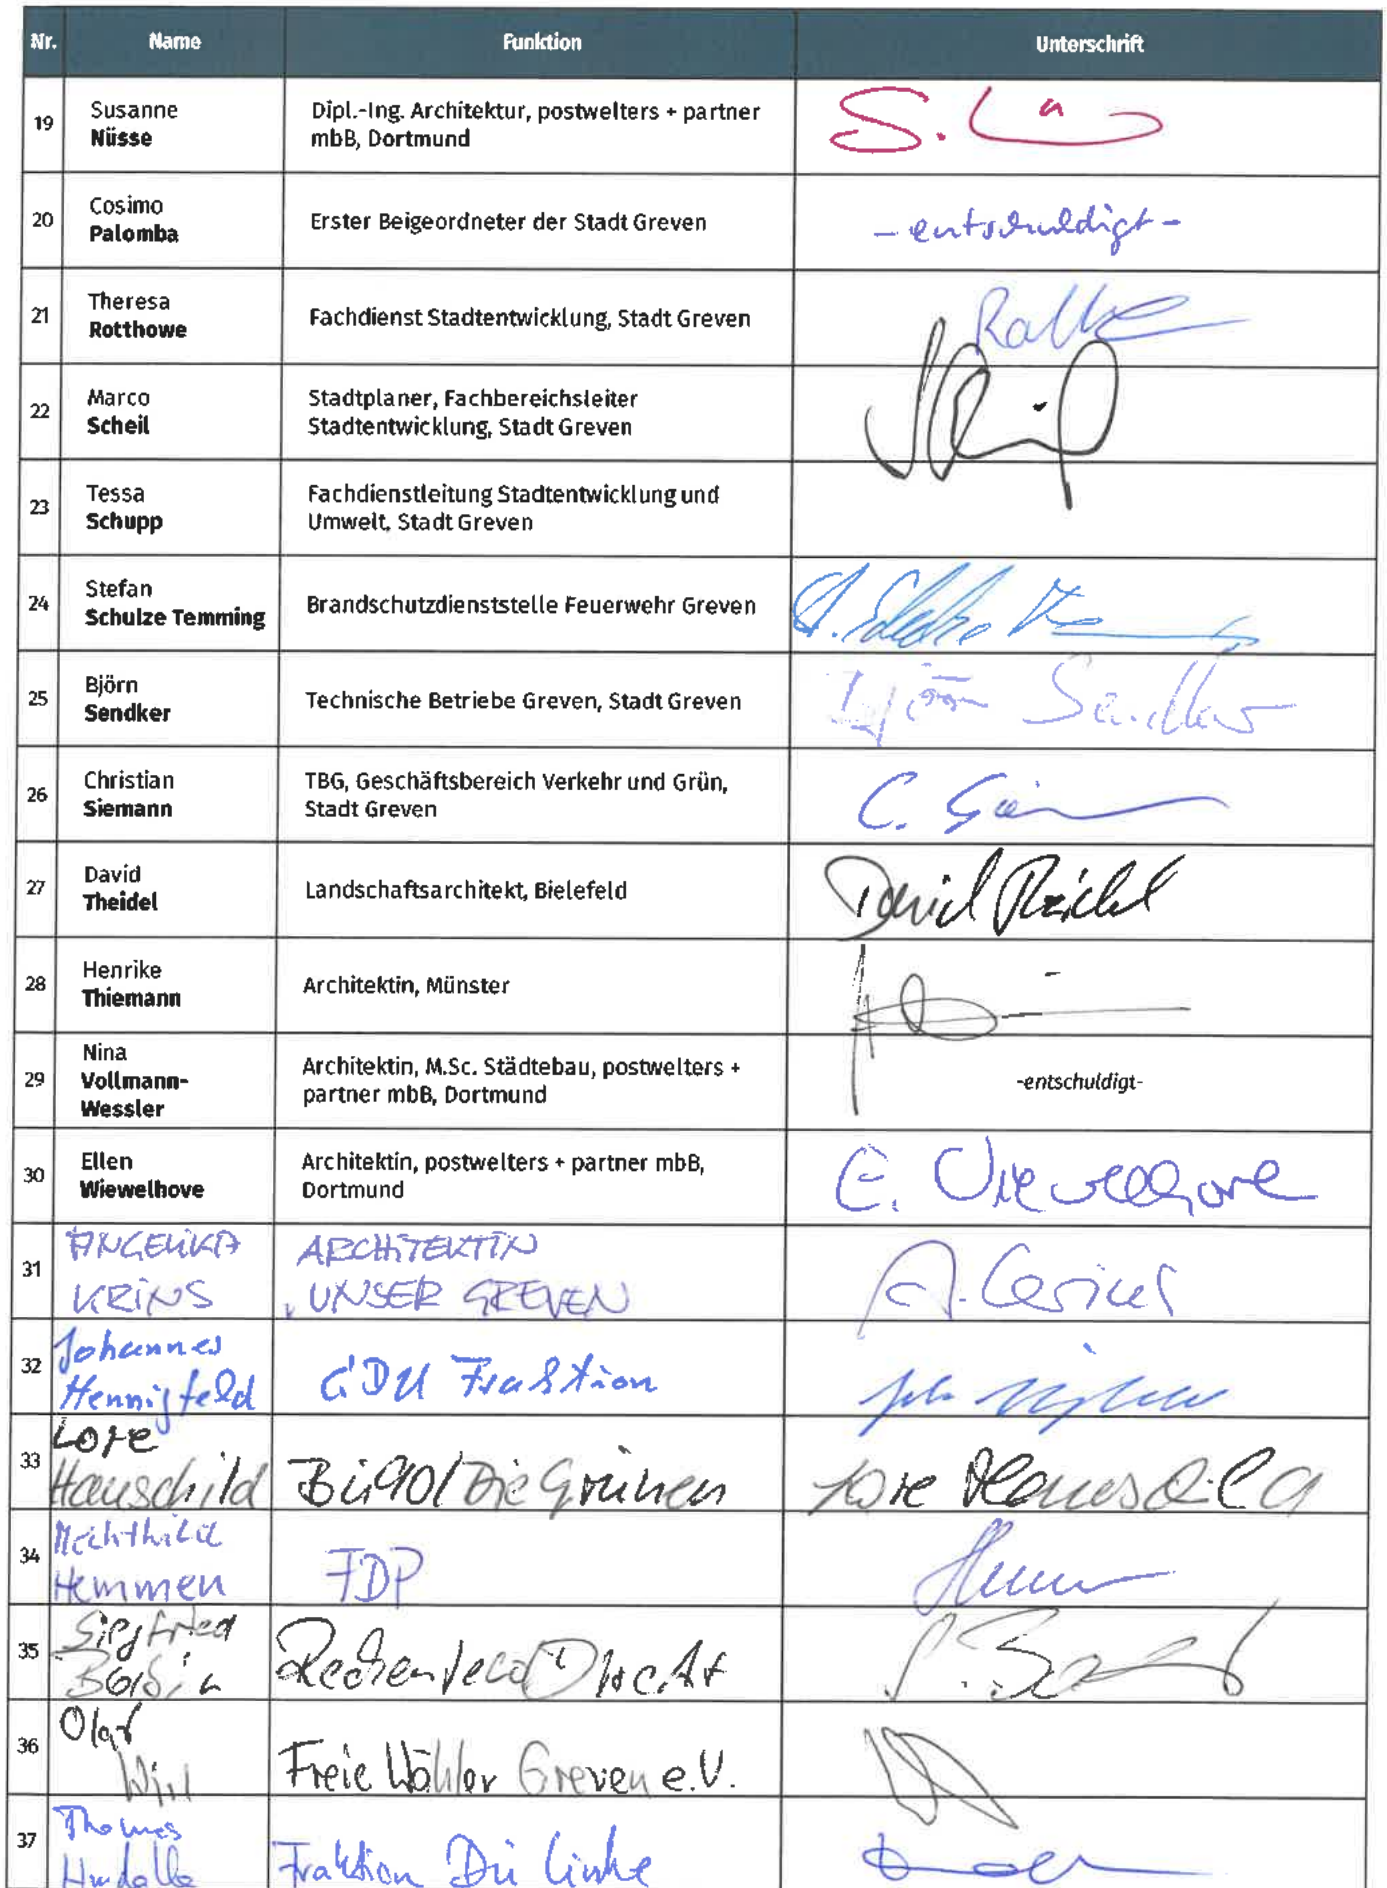 Nr. Name Funktion Unterschrift
19 Susanne Nüsse Dipl.-Ing. Architektur, postwelters + partner
mbB, Dortmund
20 Cosimo Palomba Erster Beigeordneter der Stadt Greven - entschuldigt -
21 Theresa Rotthowe Fachdienst Stadtentwicklung, Stadt Greven
22 Marco Scheil Stadtplaner, Fachbereichsleiter
Stadtentwicklung, Stadt Greven
23 Tessa Schupp Fachdienstleitung Stadtentwicklung und
Umwelt, Stadt Greven
24 Stefan Schulze Temming Brandschutzdienststelle Feuerwehr Greven
25 Björn Sendker Technische Betriebe Greven, Stadt Greven Björn Sendker
26 Christian Siemann TBG, Geschäftsbereich Verkehr und Grün,
Stadt Greven C.
27 David Theidel Landschaftsarchitekt, Bielefeld David Theidel
28 Henrike Thiemann Architektin, Münster
29 Nina Vollmann-
Wessler Architektin, M.Sc. Städtebau, postwelters +
partner mbB, Dortmund -entschuldigt-
30 Ellen Wiewelhove Architektin, postwelters + partner mbB,
Dortmund E. Wiewelhove
31 ANGELIKA KRINS ARCHITEKTIN
UNSER GREVEN
32 Johannes Hennigfeld CDU Fraktion
33 Lore Hauschild Bü90/Die Grünen Lore Hauschild
34 Mechthild Hemmen FDP
35 Siegfried
36 Olaf Freie Wähler Greven e.V.
37 Thomas Fraktion Die Linke